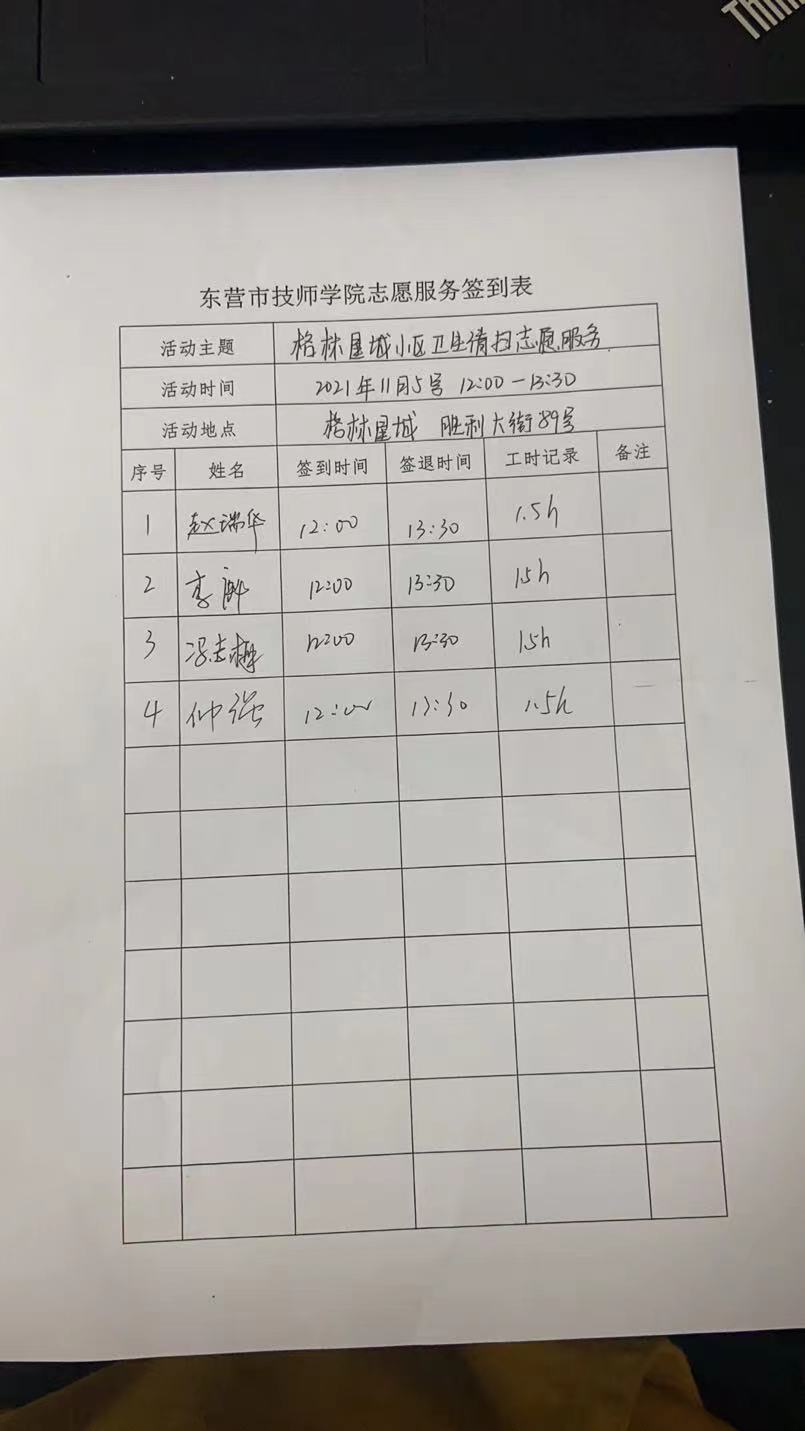 Thin
东营市技师学院志愿服务签到表
活动主题 格林星城小区卫生清扫志愿服务
活动时间 2021年11月5号 12:00-13:30
活动地点 格林星城 胜利大街89号
序号 姓名 签到时间 签退时间 工时记录 备注
1 赵瑞华 12:00 13:30 1.5h
2 李 12:00 13:30 1.5h
3 冯志 12:00 13:30 1.5h
4 仲强 12:00 13:30 1.5h